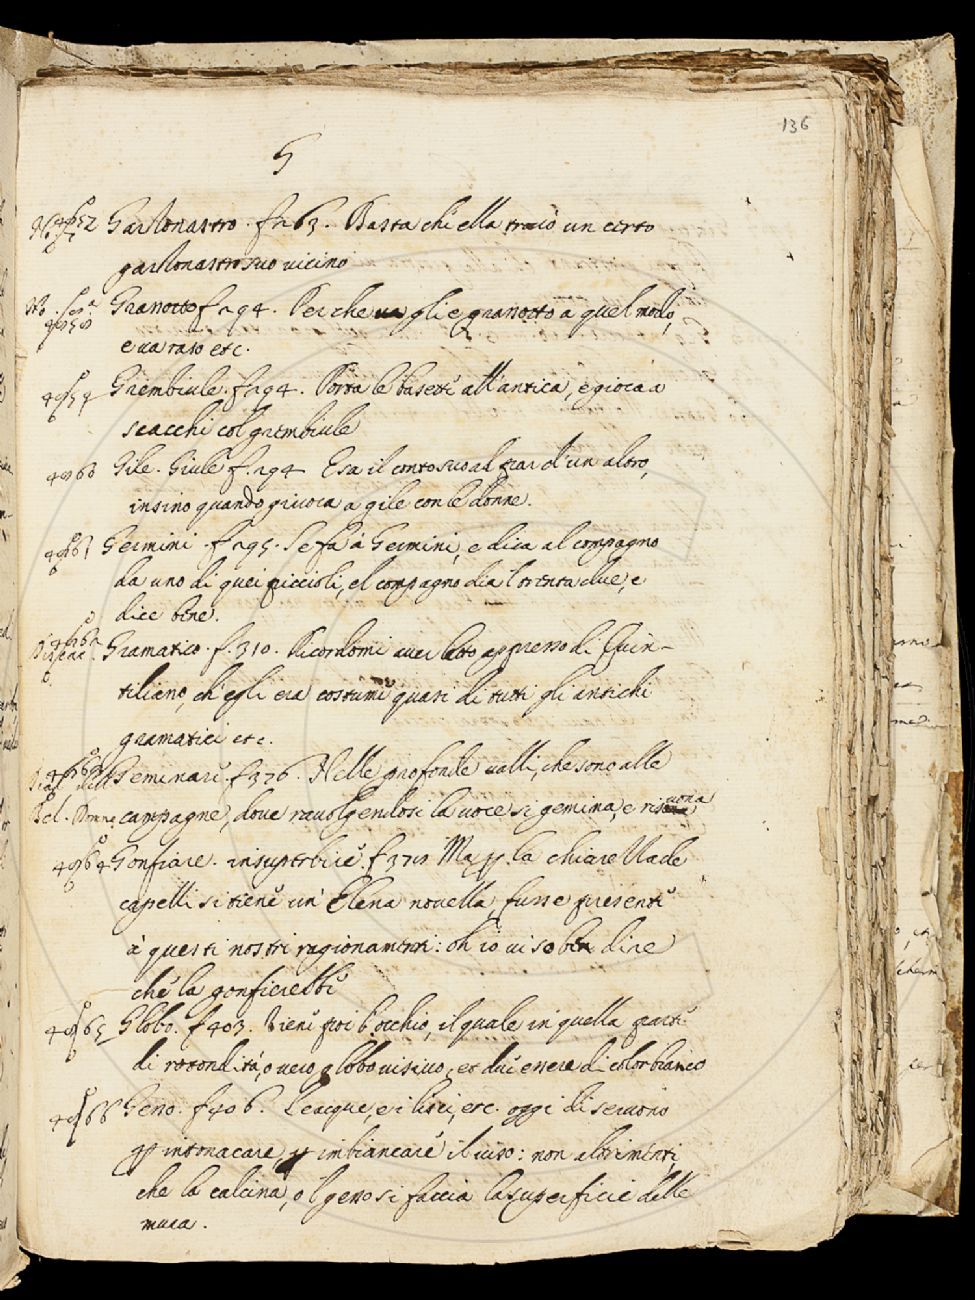 136
G
Garzonastro. f 263. Basta ch'ella trovò un certo
garzonastro suo vicino
Granotto f 294. Perche gli e granotto a quel modo,
e va raso etc.
Grembiule. f 294. Porta le basette all'antica, e gioca a
scacchi col grembiule
Gile. Giule f. 294 Esa il conto suo al par d'un altro,
insino quando giuoca a gile con le donne.
Germini. f 295. Se fa à Germini, e dica al compagno
da uno di quei piccioli, el compagno dia 'l trenta due, e
dice bene.
Gramatico. f. 310. Ricordomi aver letto appresso di Quin-
tiliano, ch'egli era costume quasi di tutti gli antichi
gramatici etc.
Geminare. f 376. Nelle profonde valli, che sono alle
Bel. Donne campagne, dove ravolgendosi la voce si gemina, e risuona
Gonfiare. insuperbire. f 378 Ma la chiare
capelli si tiene un' Elena novella, fusse presente
à questi nostri ragionamenti: oh io vi so ben dire
che la gonfierebbe
Globo. f 403. Viene poi l'occhio, il quale in quella parte
di rotondità, overo globo visivo, et duè essere di color bianco
Gesso. f 406. Le acque, e i lisci, etc. oggi di servono
p intonacare, p imbiancare il viso: non altrimenti,
che la calcina, o 'l gesso si faccia la superficie delle
mura.